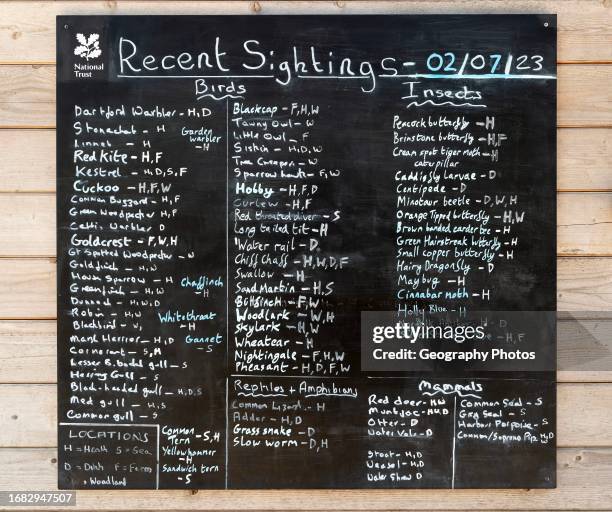 National
Trust
Recent Sightings - 02/07/23
Birds
Dartford Warbler - H, D
Stonechat - H
Linnet - H
Garden
warbler
- H
Red Kite - H, F
Kestrel - H, D, S, F
Cuckoo - H, F, W
Common Buzzard - H, F
Green Woodpecker H, F
Cettis Warbler D
Goldcrest - F, W, H
Gt Spotted Woodpecker - W
Goldfinch - H, W
House Sparrow - H
Greenfinch - H, W
Chaffinch
- H
Dunnock - H, W, D
Robin - H, W
Blackbird - W
Whitethroat
- H
Marsh Harrier - H, D
Cormorant - S, H
Gannet
- S
Lesser B. backed gull - S
Herring Gull - S
Black-headed gull - H, D, S
Med gull - H
Common gull -
LOCATIONS
H = Heath S = Sea
D = Dutch F = Farm
Woodland
Common
Tern - S, H
Yellowhammer
- H
Sandwich tern
- S
Blackcap - F, H, W
Tawny Owl - W
Little Owl - F
Siskin - H, D, W
Tree Creeper - W
Sparrow hawk - F, W
Hobby - H, F, D
Curlew - H, F
Red throated diver - S
Long tailed tit - H
Water rail - D
Chiff Chaff - H, W, D, F
Swallow - H
Sand Martin - H, S
Bullfinch - F, W
Woodlark - W, H
Skylark - H, W
Wheatear - H
Nightingale - F, H, W
Pheasant - H, D, F, W
Reptiles + Amphibians
Common Lizard - H
Adder - H, D
Grass snake - D
Slow worm - D, H
Insects
Peacock butterfly - H
Brimstone butterfly - H, F
Cream spot tiger moth - H
caterpillar
Caddisfly larvae - D
Centipede - D
Minotaur beetle - D, W, H
Orange Tipped butterfly - H, W
Brown banded carder bee - H
Green Hairstreak butterfly - H
Small copper butterfly - H
Hairy Dragonfly - D
May bug - H
Cinnabar Moth - H
Holly Blue - H
gettyimages
Credit: Geography Photos
Mammals
Red deer - H, W
Muntjac - H, W, D
Otter - D
Water Vole - D
Stoat - H, D
Weasel - H, D
Water Shrew D
Common Seal - S
Grey Seal - S
Harbour Porpoise - S
Common/Soprano Pip. H, D
1682947507